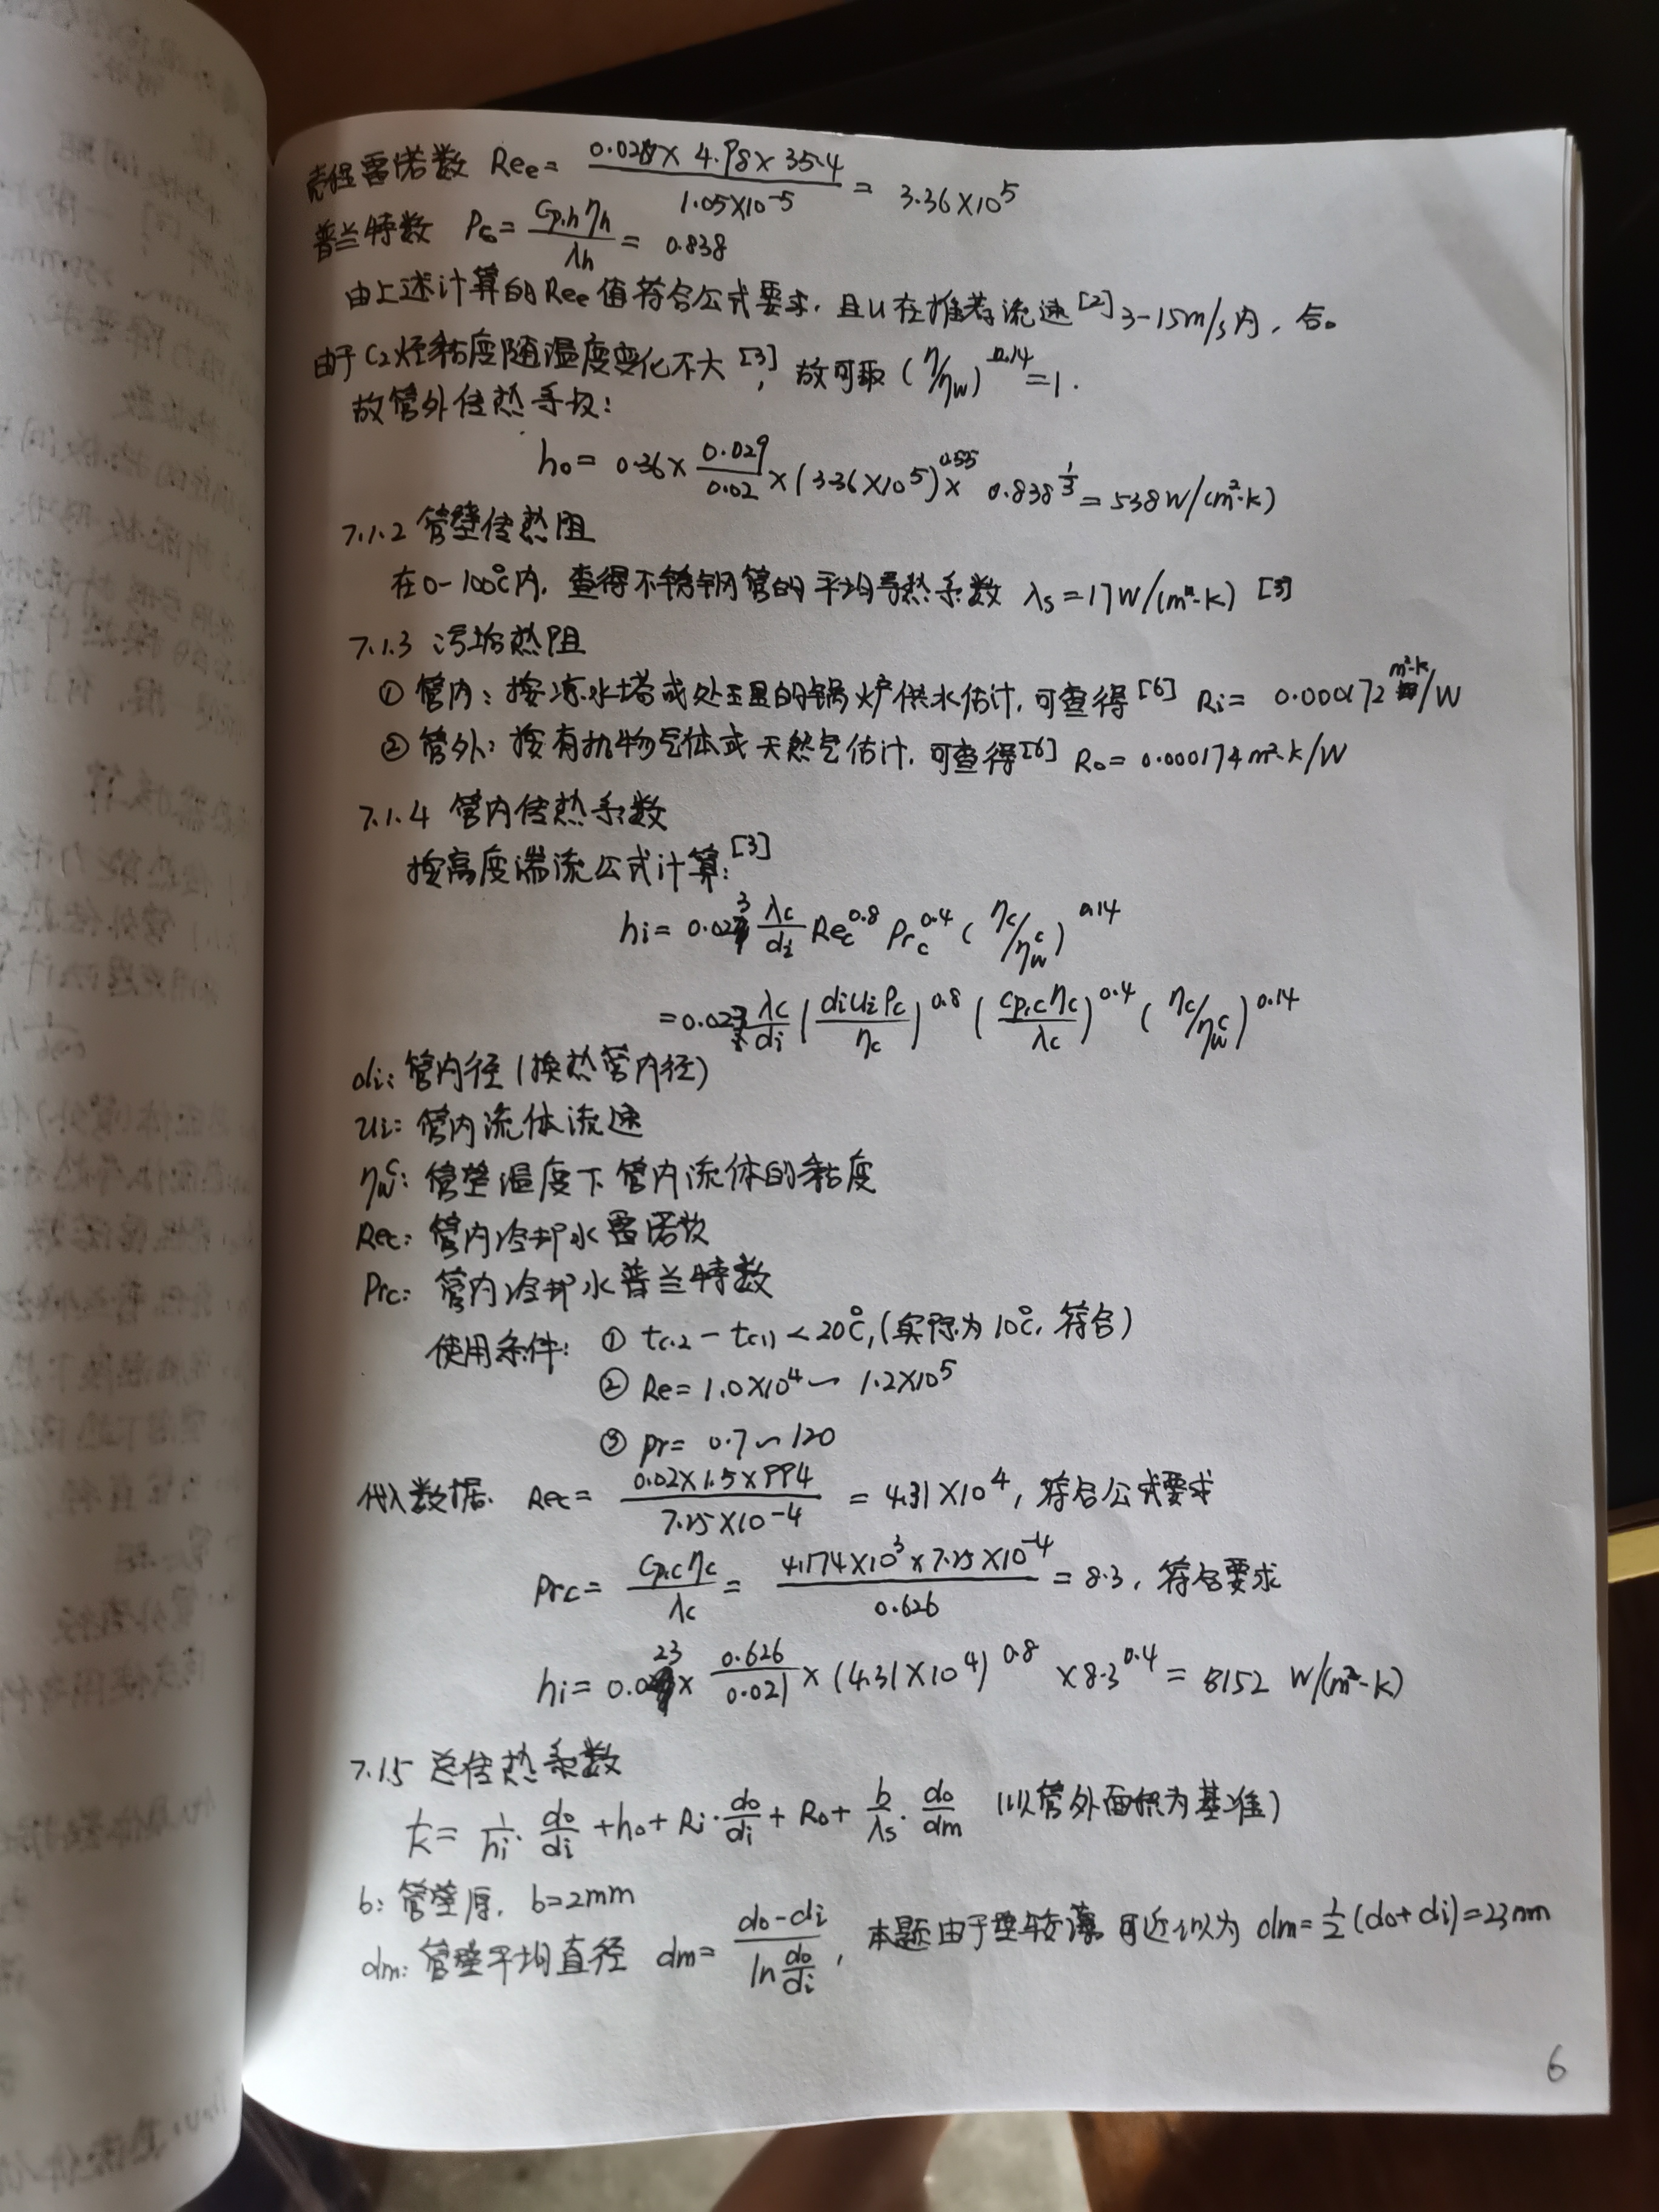 壳程雷诺数 Ree = (0.020 × 4.98 × 35.4) / (1.05×10-5) = 3.36×10^5
普兰特数 Pr = Cp.h ηh / λh = 0.838
由上述计算的Ree值符合公式要求，且u在推荐流速[2] 3-15m/s内，合。
由于C2烃黏度随温度变化不大[3]，故可取 (η/ηw)^0.14 = 1.
故管外传热系数：
ho = 0.36 × 0.029/0.02 × (3.36×10^5)^0.55 × 0.838^(1/3) = 538 W/(m²·k)
7.1.2 管壁传热阻
在0-100℃内，查得不锈钢管的平均导热系数 λs = 17 W/(m·k) [3]
7.1.3 污垢热阻
① 管内：按凉水塔或处理的锅炉供水估计，可查得[6] Ri = 0.000172 m²·k/W
② 管外：按有机物气体或天然气估计，可查得[6] Ro = 0.000174 m²·k/W
7.1.4 管内传热系数
按高度湍流公式计算：[3]
hi = 0.023 λc/di Rec^0.8 Prc^0.4 (ηc/ηw^c)^0.14
= 0.023 λc/di (di ui ρc/ηc)^0.8 (Cp.c ηc/λc)^0.4 (ηc/ηw^c)^0.14
di：管内径（换热管内径）
ui：管内流体流速
ηw^c：管壁温度下管内流体的黏度
Rec：管内冷却水雷诺数
Prc：管内冷却水普兰特数
使用条件：① tc.2 - tc.1 < 20℃，（实际为10℃，符合）
② Re = 1.0×10^4 ~ 1.2×10^5
③ pr = 0.7 ~ 120
代入数据 Rec = (0.02×1.5×994) / (7.25×10-4) = 4.31×10^4，符合公式要求
Prc = Cp.c ηc / λc = (4.174×10^3 × 7.25×10^-4) / 0.626 = 8.3，符合要求
hi = 0.023 × 0.626/0.021 × (4.31×10^4)^0.8 × 8.3^0.4 = 8152 W/(m²·k)
7.1.5 总传热系数
1/k = 1/hi · do/di + ho + Ri · do/di + Ro + b/λs · do/dm （以管外面积为基准）
b：管壁厚，b=2mm
dm：管壁平均直径 dm = (do-di) / ln(do/di)，本题由于壁较薄 可近似为 dm = 1/2 (do+di) = 23mm
6